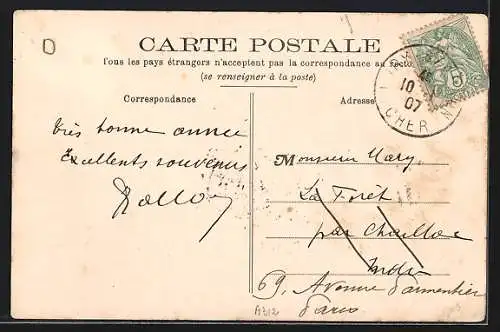 CARTE POSTALE
Tous les pays étrangers n'acceptent pas la correspondance au recto
(se renseigner à la poste)
Correspondance
Adresse
10
07
CHER
5
Très bonne année
Excellents souvenirs
Monsieur
La Forêt
par
Indre
69, Avenue Parmentier
Paris